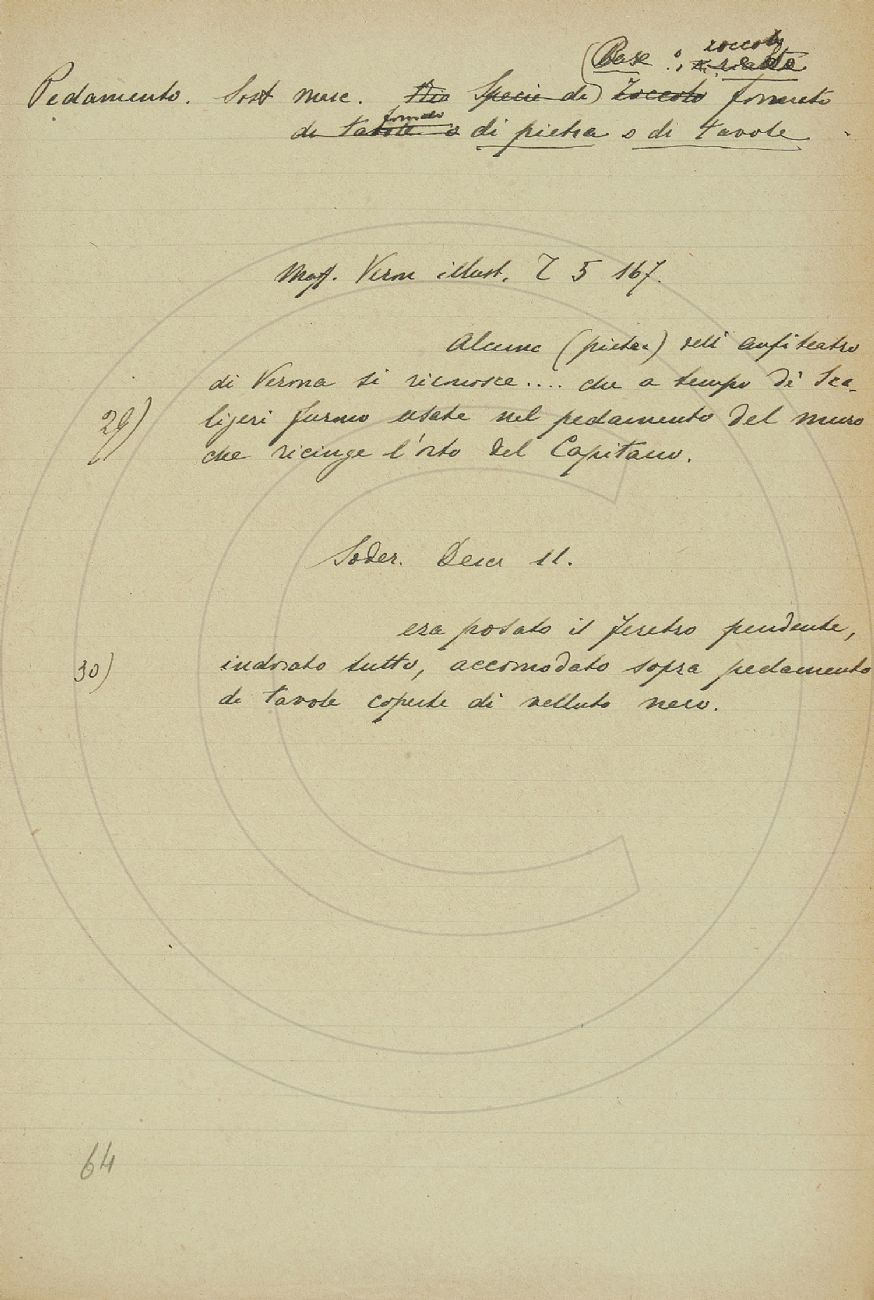 Base o zoccolo
Pedamento. Sost masc. Specie di Zoccolo formato
di tavole o di pietra o di tavole
Maff. Veron illust. T 5 167.
Alcune (pietre) dell' anfiteatro
di Verona si riconosce.... che a tempo di Sca-
29) ligeri furono usate nel pedamento del muro
che ricinge l'orto del Capitano.
Soder. Descr 11.
era posato il feretro pendente,
30) indorato tutto, accomodato sopra pedamento
di tavole coperte di velluto nero.
64